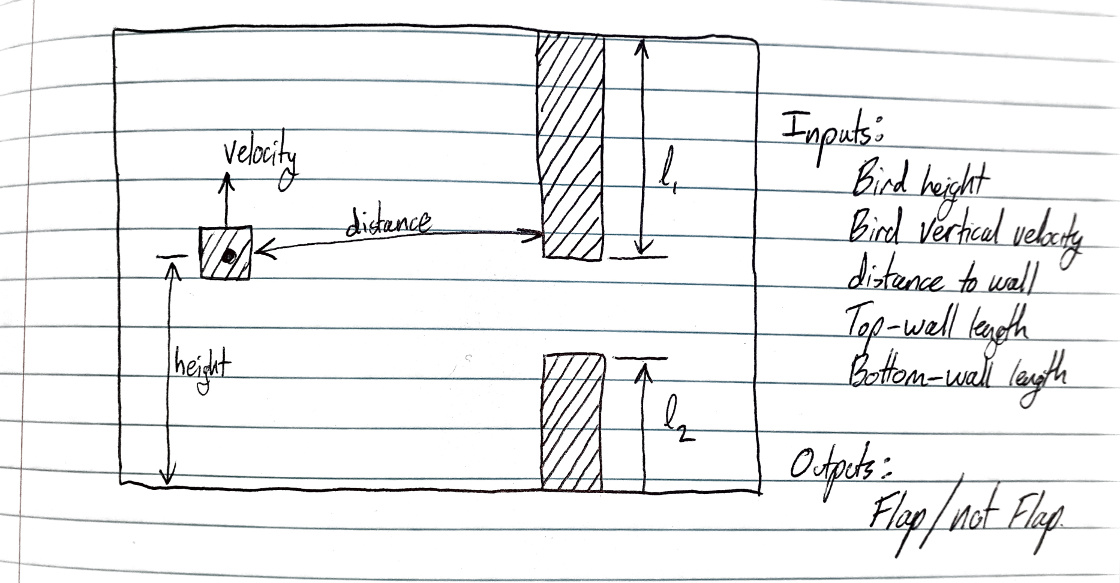 velocity
distance
height
l₁
l₂
Inputs:
Bird height
Bird vertical velocity
distance to wall
Top-wall length
Bottom-wall length
Outputs:
Flap/not Flap.